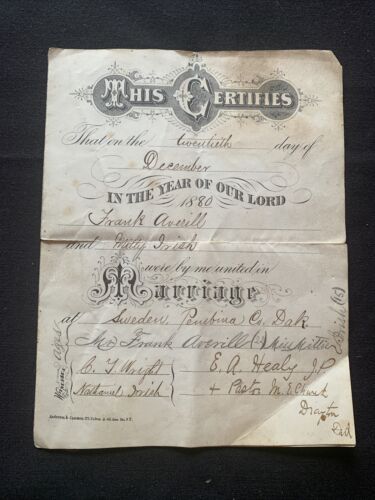 THIS CERTIFIES
That on the twentieth day of
December
IN THE YEAR OF OUR LORD
1880
Frank Averill
and Kitty Irish
were by me united in
Marriage
at Sweden Pembina Co. Dak
Frank Averill Miss Kittie
Irish (15)
C. T. Wright E. A. Healy J.P.
Nathaniel Irish + Pastor M. E. Church
Drayton